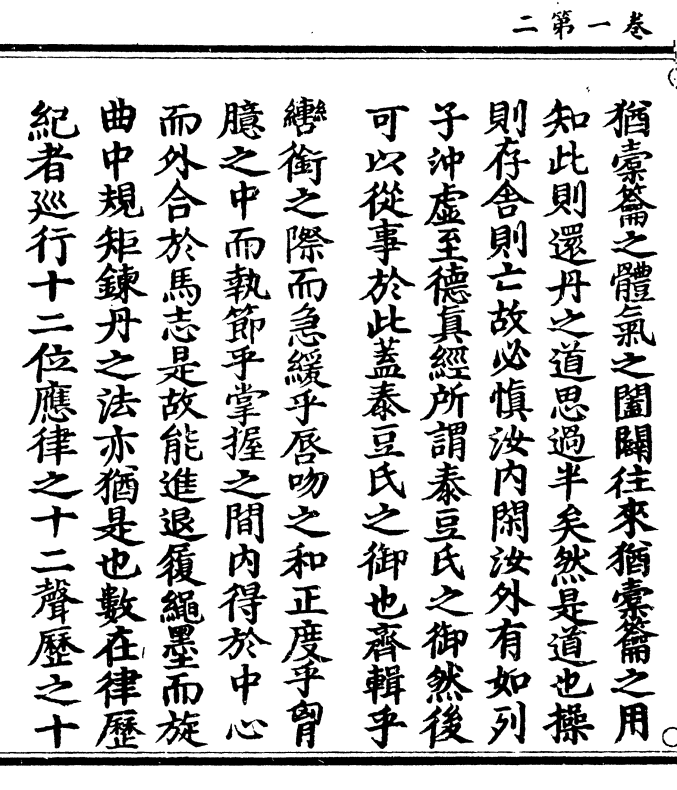 卷一第二
猶橐籥之體氣之闔闢往來猶橐籥之用
知此則還丹之道思過半矣然是道也操
則存舍則亡故必慎汝内閑汝外有如列
子沖虛至德真經所謂泰豆氏之御然後
可以從事於此蓋泰豆氏之御也齊輯乎
轡銜之際而急緩乎唇吻之和正度乎胷
臆之中而執節乎掌握之間内得於中心
而外合於馬志是故能進退履繩墨而旋
曲中規矩鍊丹之法亦猶是也數在律歷
紀者巡行十二位應律之十二聲歷之十